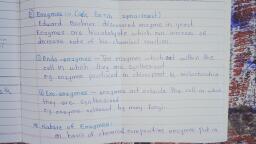 Enzymes :-
Edward Buchner discovered enzyme in yeast
Enzymes are biocatalysts which can increase or
decrease rate of bio chemical reaction
① Endo-enzymes - The enzymes which act within the
cell in which they are synthesised
eg. enzyme produced in chloroplast & mitochondria
② Exo-enzymes - enzymes act outside the cell in which
they are synthesised
eg. enzyme released by many fungi.
* Nature of Enzymes:
on basis of chemical composition enzymes